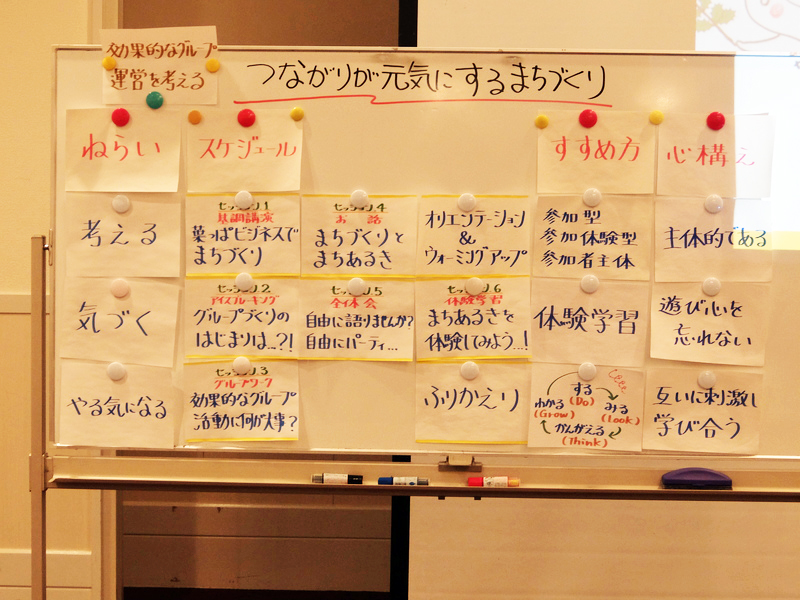 効果的なグループ
運営を考える
つながりが元気にするまちづくり
ねらい
考える
気づく
やる気になる
スケジュール
セッション.1
基調講演
葉っぱビジネスで
まちづくり
セッション.2
アイスブレーキング
グループづくりの
はじまりは...?!
セッション.3
グループワーク
効果的なグループ
活動に何が大事?
セッション.4
お話
まちづくりと
まちあるき
セッション.5
全体会
自由に語りませんか?
自由にパーティ...
オリエンテーション
&
ウォーミングアップ
セッション.6
体験学習
まちあるきを
体験してみよう...!
ふりかえり
すすめ方
参加型
参加体験型
参加者主体
体験学習
する
(Do)
みる
(Look)
かんがえる
(Think)
わかる
(Grow)
心構え
主体的である
遊び心を
忘れない
互いに刺激し
学び合う